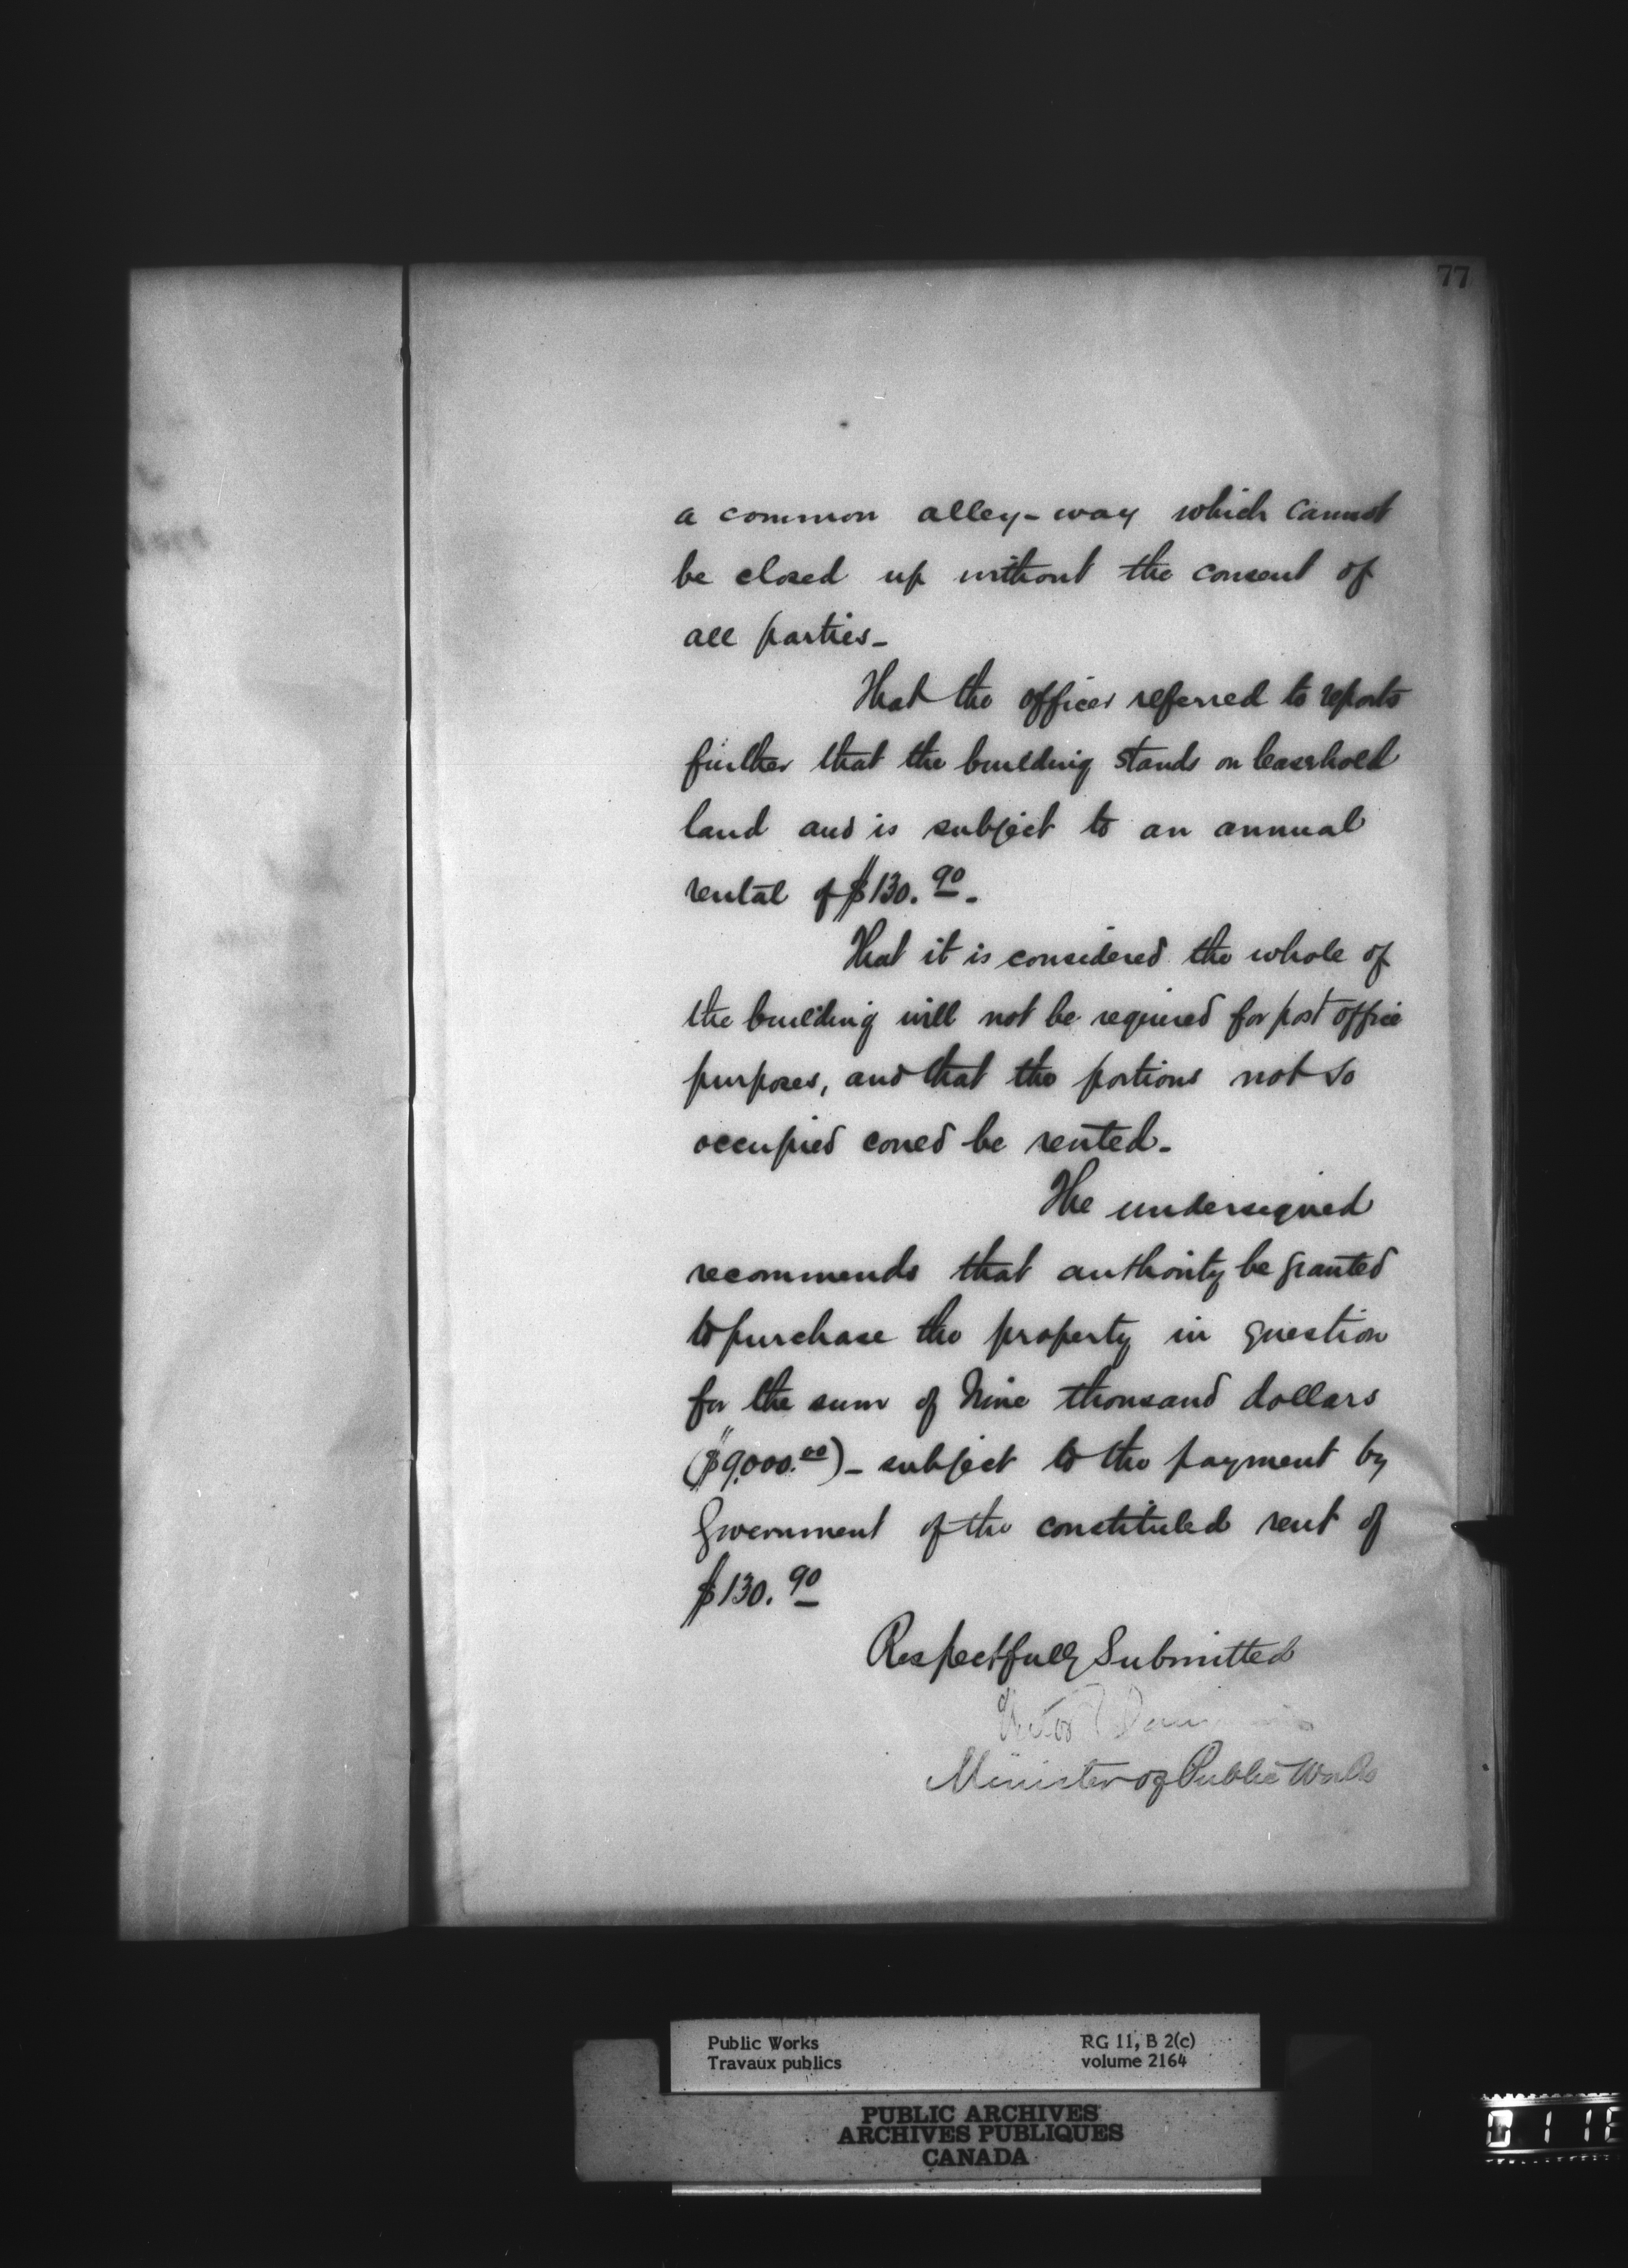 77
a common alley-way which cannot
be closed up without the consent of
all parties_
That the officer referred to reports
further that the building stands on leasehold
land and is subject to an annual
rental of $130.90_
That it is considered the whole of
the building will not be required for post office
purposes, and that the portions not so
occupied could be rented_
The undersigned
recommends that authority be granted
to purchase the property in question
for the sum of Nine thousand dollars
($9,000.00)_ subject to the payment by
Government of the constituted rent of
$130.90
Respectfully Submitted
Minister of Public Works
Public Works
Travaux publics
RG 11, B 2(c)
volume 2164
PUBLIC ARCHIVES
ARCHIVES PUBLIQUES
CANADA